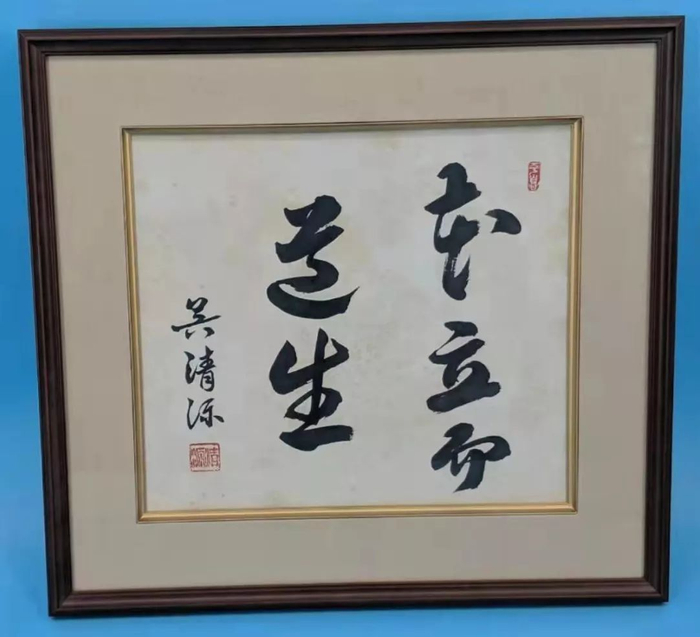 本立而
道生
吳清源